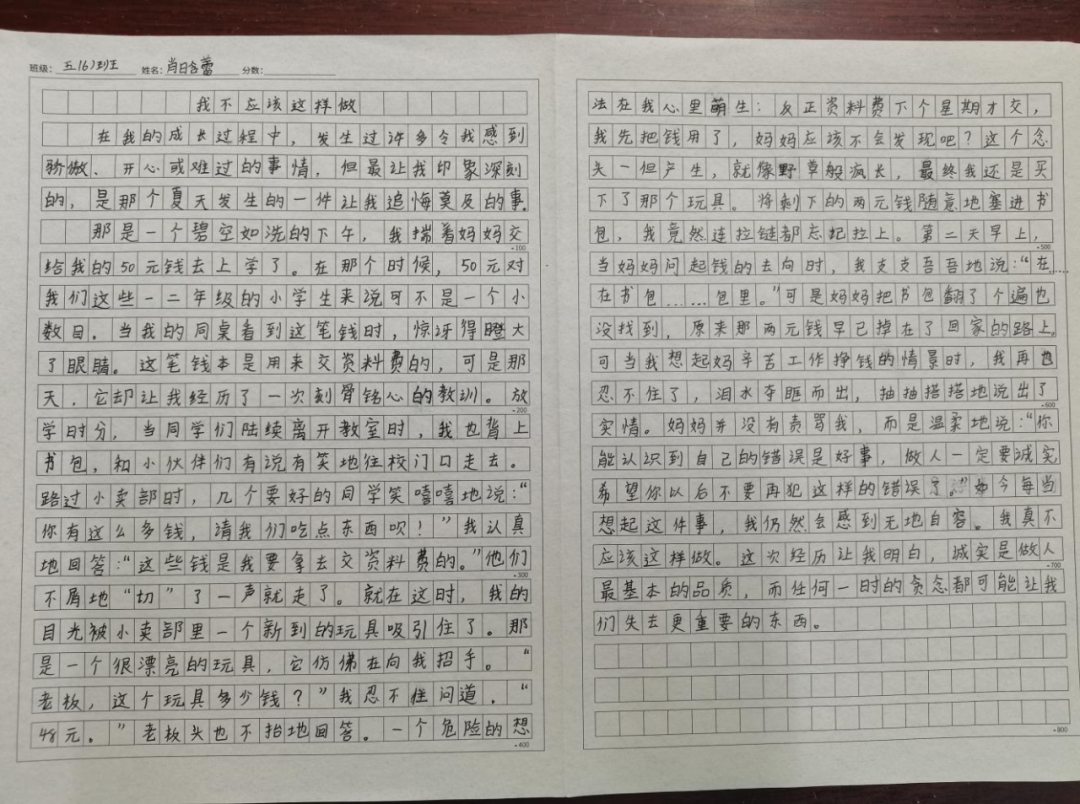 班级： 五(6)班 姓名：肖日含蕾 分数：
我不应该这样做
在我的成长过程中，发生过许多令我感到
骄傲、开心或难过的事情，但最让我印象深刻
的，是那个夏天发生的一件让我追悔莫及的事。
那是一个碧空如洗的下午，我揣着妈妈交
+100
给我的50元钱去上学了。在那个时候，50元对
我们这些一二年级的小学生来说可不是一个小
数目。当我的同桌看到这笔钱时，惊讶得瞪大
了眼睛。这笔钱本是用来交资料费的，可是那
天，它却让我经历了一次刻骨铭心的教训。放
+200
学时分，当同学们陆续离开教室时，我也背上
书包，和小伙伴们有说有笑地往校门口走去。
路过小卖部时，几个要好的同学笑嘻嘻地说：“
你有这么多钱，请我们吃点东西呗！”我认真
地回答：“这些钱是我要拿去交资料费的。”他们
+300
不屑地“切”了一声就走了。就在这时，我的
目光被小卖部里一个新到的玩具吸引住了。那
是一个很漂亮的玩具，它仿佛在向我招手。“
老板，这个玩具多少钱？”我忍不住问道，“
48元。”老板头也不抬地回答。一个危险的想
+400
法在我心里萌生：反正资料费下个星期才交，
我先把钱用了，妈妈应该不会发现吧？这个念
头一但产生，就像野草般疯长，最终我还是买
下了那个玩具。将剩下的两元钱随意地塞进书
包，我竟然连拉链都忘记拉上。第二天早上，
+500
当妈妈问起钱的去向时，我支支吾吾地说：“在……
在书包……包里。”可是妈妈把书包翻了个遍也
没找到，原来那两元钱早已掉在了回家的路上。
可当我想起妈辛苦工作挣钱的情景时，我再也
忍不住了，泪水夺眶而出，抽抽搭搭地说出了
+600
实情。妈妈并没有责骂我，而是温柔地说：“你
能认识到自己的错误是好事，做人一定要诚实，
希望你以后不要再犯这样的错误了。”如今每当
想起这件事，我仍然会感到无地自容。我真不
应该这样做。这次经历让我明白，诚实是做人
+700
最基本的品质，而任何一时的贪念都可能让我
们失去更重要的东西。
+800